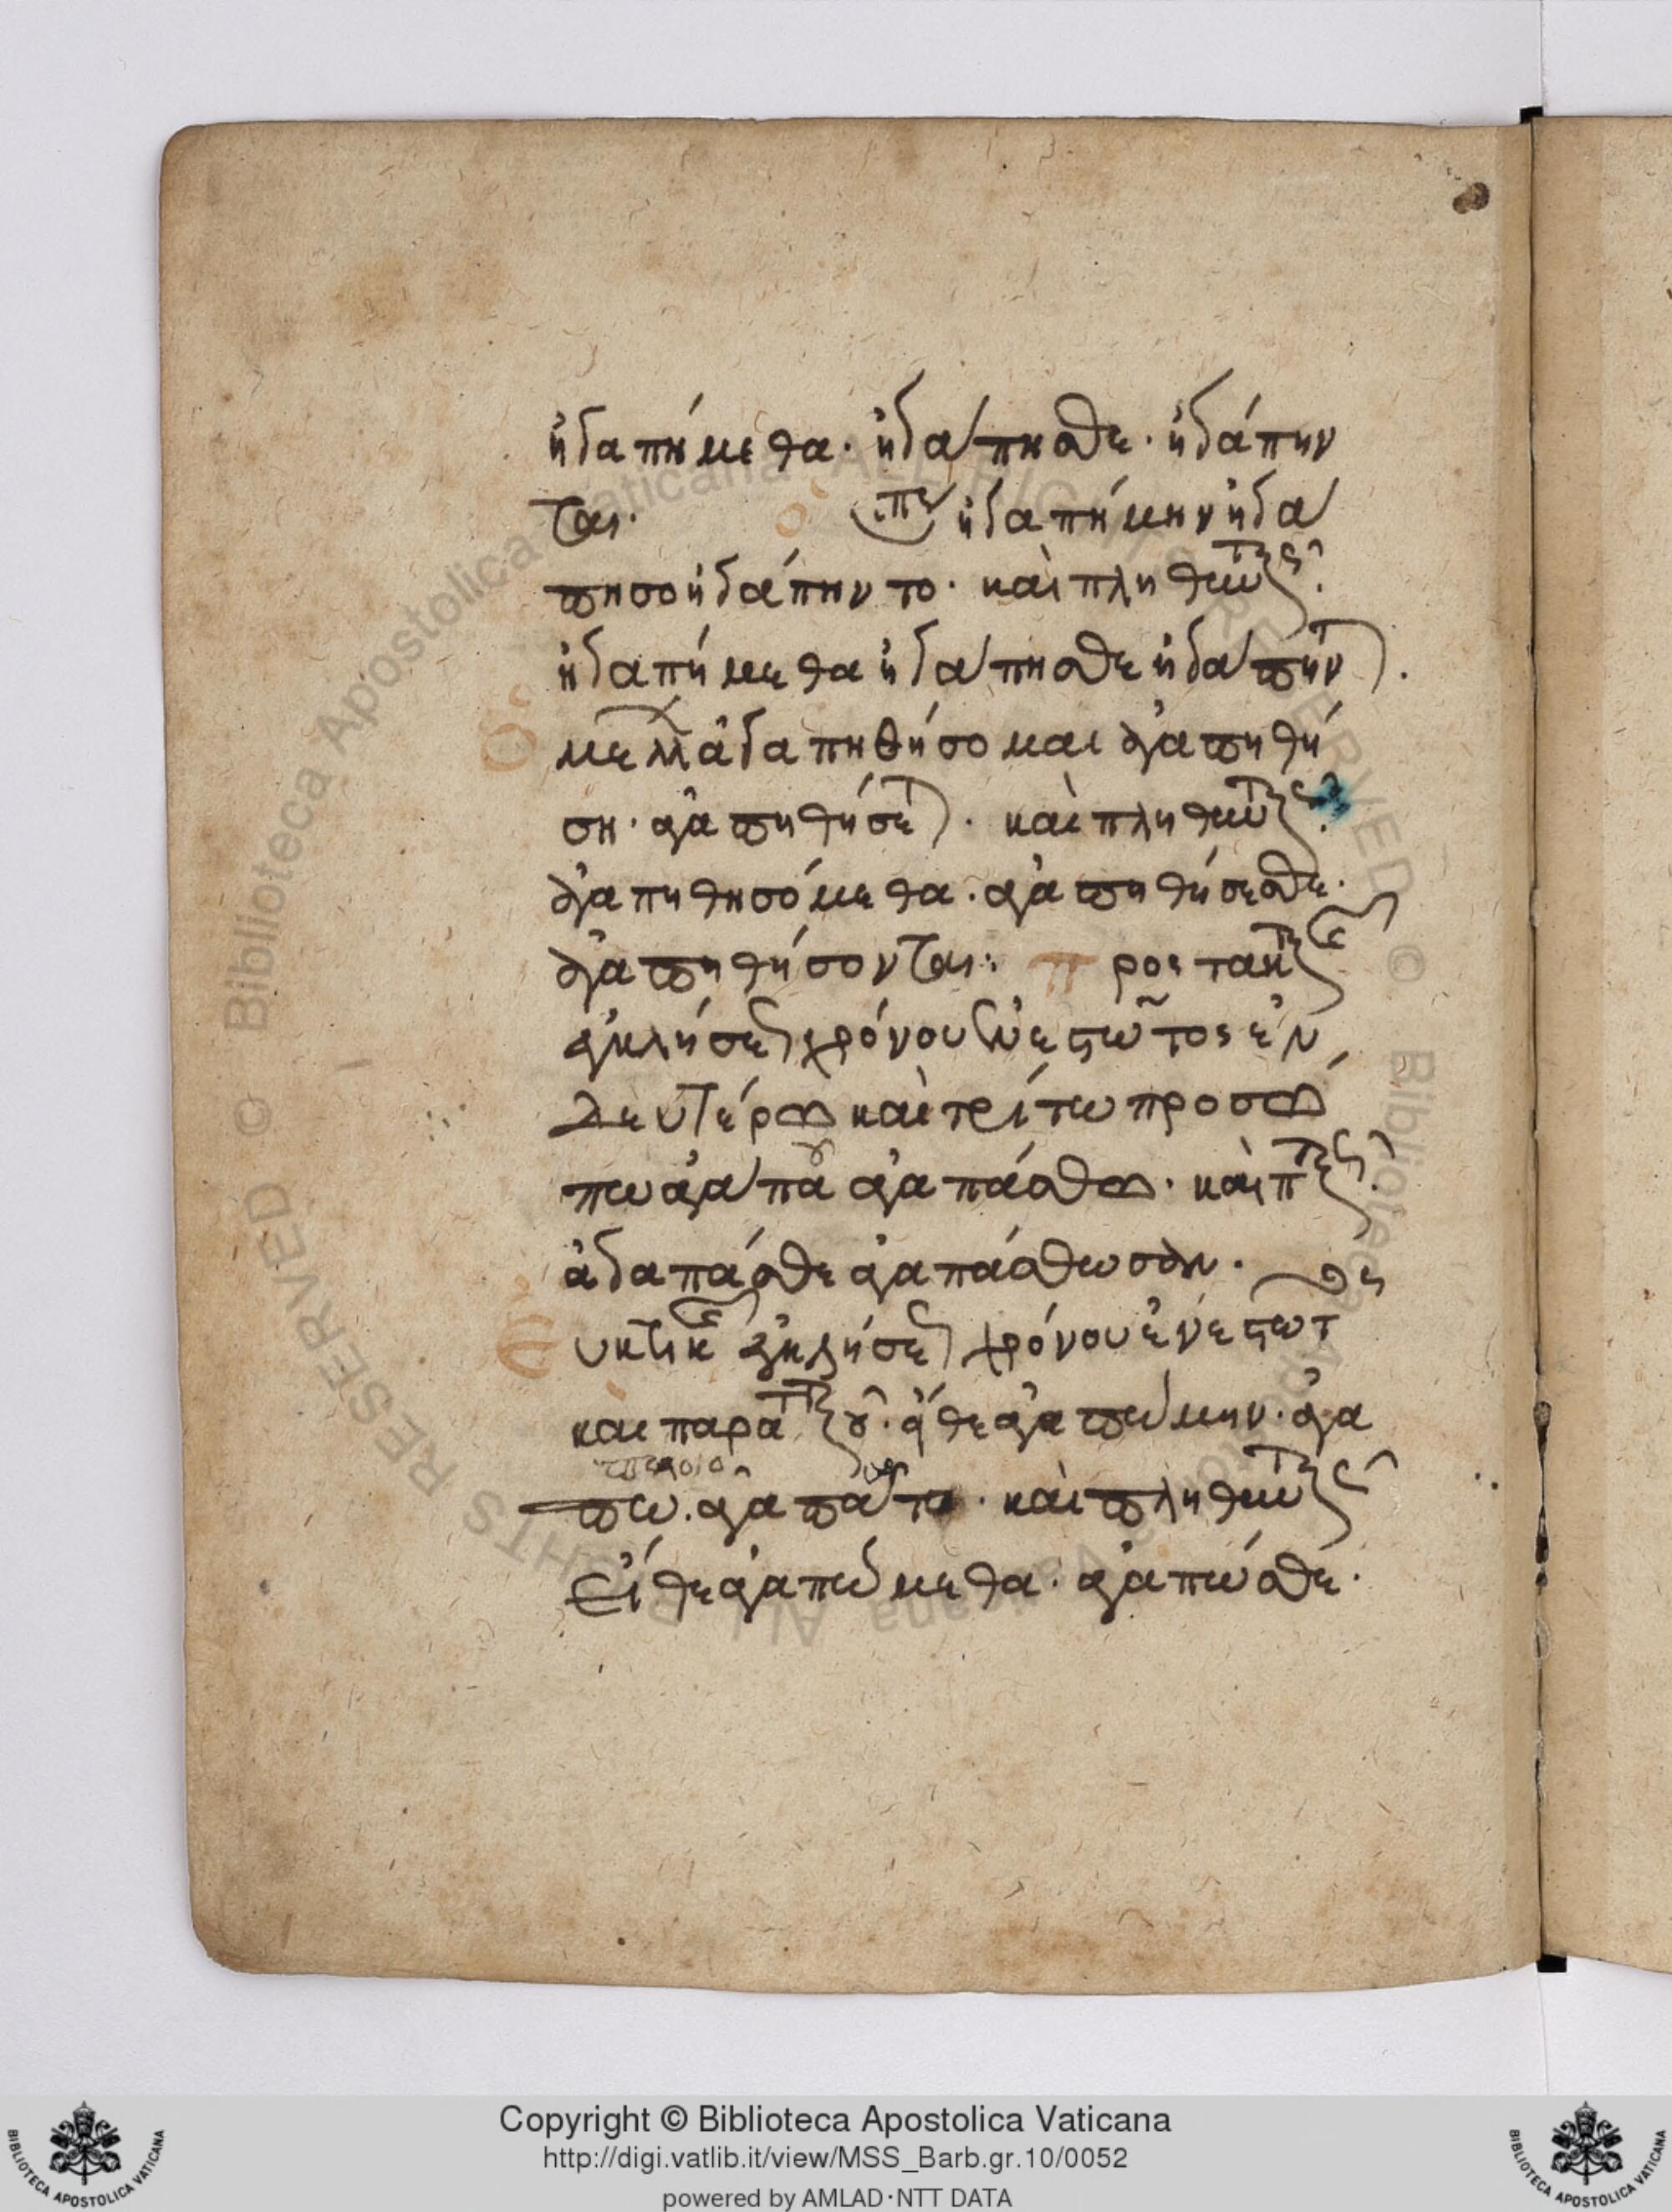 ἠγαπήμεθα· ἠγάπησθε· ἠγάπην
ται· ὁ ὑπερ ἠγαπήμην ἠγά
πησο ἠγάπηντο· καὶ πληθυντικῶς·
ἠγαπήμεθα ἠγάπησθε ἠγάπηντο·
Ὁ μέλλων ἀγαπηθήσομαι ἀγαπηθή
ση· ἀγαπηθήσεται· καὶ πληθυντικῶς·
ἀγαπηθησόμεθα· ἀγαπηθήσεσθε·
ἀγαπηθήσονται: Προστακτικῆς
ἐγκλήσεως χρόνου ἐνεστῶτος ἐν
δευτέρω καὶ τρίτω προσώ
πω ἀγαπῶ ἀγαπάσθω· καὶ πληθυντικῶς·
ἀγαπάσθε ἀγαπάσθωσαν·
Εὐκτικῆς ἐγκλήσεως χρόνου ἐνεστῶτος
καὶ παρατατικοῦ· εἴθε ἀγαπώμην· ἀγα
πῶ· ἀγαπᾶτο· καὶ πληθυντικῶς
Εἴθε ἀγαπώμεθα· ἀγαπώσθε·
Copyright © Biblioteca Apostolica Vaticana
http://digi.vatlib.it/view/MSS_Barb.gr.10/0052
powered by AMLAD·NTT DATA